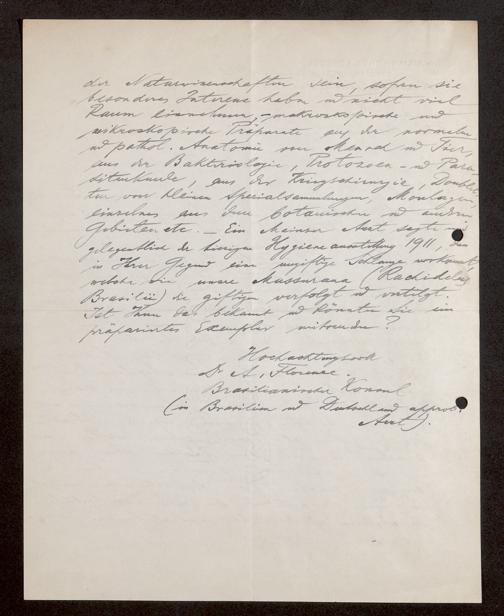 der Naturwissenschaften sein, sofern sie
besonderes Interesse haben und nicht viel
Raum einnehmen, – makroskopische und
mikroskopische Präparate aus der normalen
und pathol. Anatomie von Mensch und Tier,
aus der Bakteriologie, Protozoen- und Para-
sitenkunde, aus der Kriegschirurgie, Doublet-
ten von kleinen Spezialsammlungen, Moulagen,
einzelnes aus dem botanischen und andern
Gebieten etc. – Ein Mainzer Arzt sagte
gelegentlich der hiesigen Hygieneausstellung 1911,
in Ihrer Gegend eine ungiftige Schlange vorkommt,
welche wie unsere Mussurana (Rachidelus
Brasilii) die giftigen verfolgt und vertilgt.
Ist Ihnen das bekannt und könnten Sie ein
präpariertes Exemplar mitsenden?
Hochachtungsvoll
Dr A. Florence.
Brasilianischer Konsul
(in Brasilien und Deutschland approb.
Arzt).